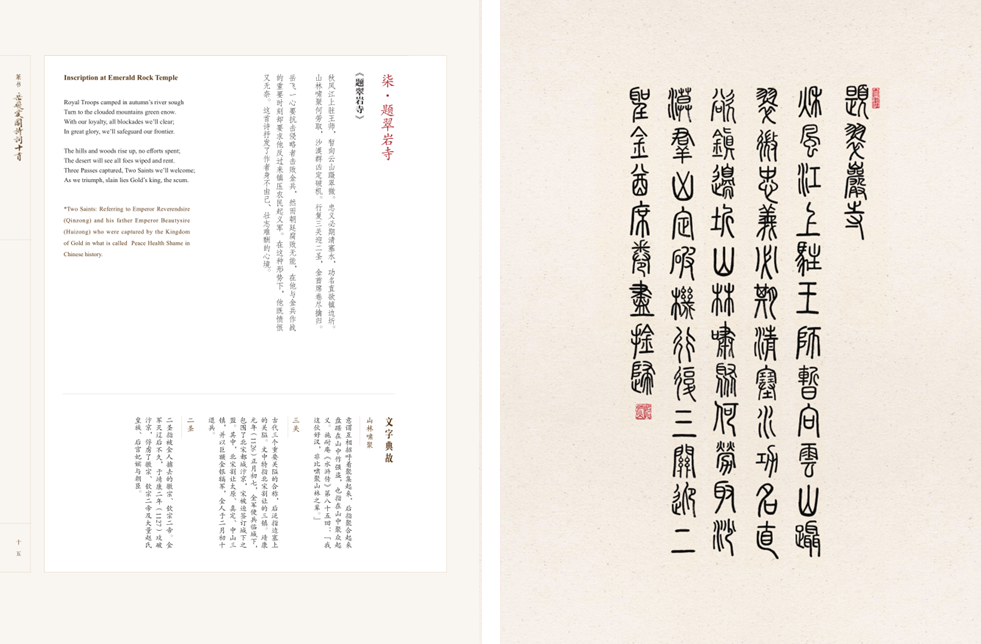 篆书
岳飛愛國詩詞十首
十五
Inscription at Emerald Rock Temple
Royal Troops camped in autumn's river sough
Turn to the clouded mountains green enow.
With our loyalty, all blockades we'll clear;
In great glory, we'll safeguard our frontier.
The hills and woods rise up, no efforts spent;
The desert will see all foes wiped and rent.
Three Passes captured, Two Saints we'll welcome;
As we triumph, slain lies Gold's king, the scum.
*Two Saints: Referring to Emperor Reverendsire
(Qinzong) and his father Emperor Beautysire
(Huizong) who were captured by the Kingdom
of Gold in what is called Peace Health Shame in
Chinese history.
柒·题翠岩寺
《题翠岩寺》
秋风江上驻王师，暂向云山蹑翠微。忠义必期清塞水，功名直欲镇边圻。
山林啸聚何劳取，沙漠群凶定破机。行复三关迎二圣，金酋席卷尽擒归。
岳飞一心要抗击侵略者击败金兵，然而朝廷腐败无能，在他与金兵作战
的重要时刻却要求他反过来镇压农民起义军。在这种形势下，他既愤恨
又无奈。这首诗抒发了作者身不由己、壮志难酬的心境。
文字典故
山林啸聚
意谓互相招呼着聚集起来。后指聚合起来
盘踞在山中作强盗，也指在山中聚众起
义。施耐庵《水浒传》第八十五回：「我
这伙好汉，非比啸聚山林之辈。」
三关
古代三个重要关隘的合称，后泛指边塞上
的关隘。文中特指北宋割让的三镇。靖康
元年（1126）正月初七，金军便兵临城下，
包围了北宋都城汴京，宋被迫签订城下之
盟。其中，北宋割让太原、真定、中山三
镇，并以巨额金银犒军，金人于二月初十
退兵。
二圣
二圣指被金人掳去的徽宗、钦宗二帝。金
军灭辽后不久，于靖康二年（1127）攻破
汴京，俘虏了徽宗、钦宗二帝及大量赵氏
皇族、后宫妃嫔与朝臣。
題翠巖寺
秌風江上駐王師暫向雲山躡
翠微忠義必期清塞水功名直
欲鎮邊圻山林嘯聚何勞取沙
漠羣凶定破機行復三關迎二
聖金酋席卷盡擒歸